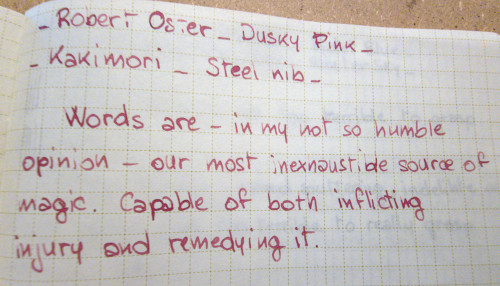 - Robert Oster - Dusky Pink -
- Kakimori - Steel nib -
Words are - in my not so humble
opinion - our most inexhaustible source of
magic. Capable of both inflicting
injury and remedying it.